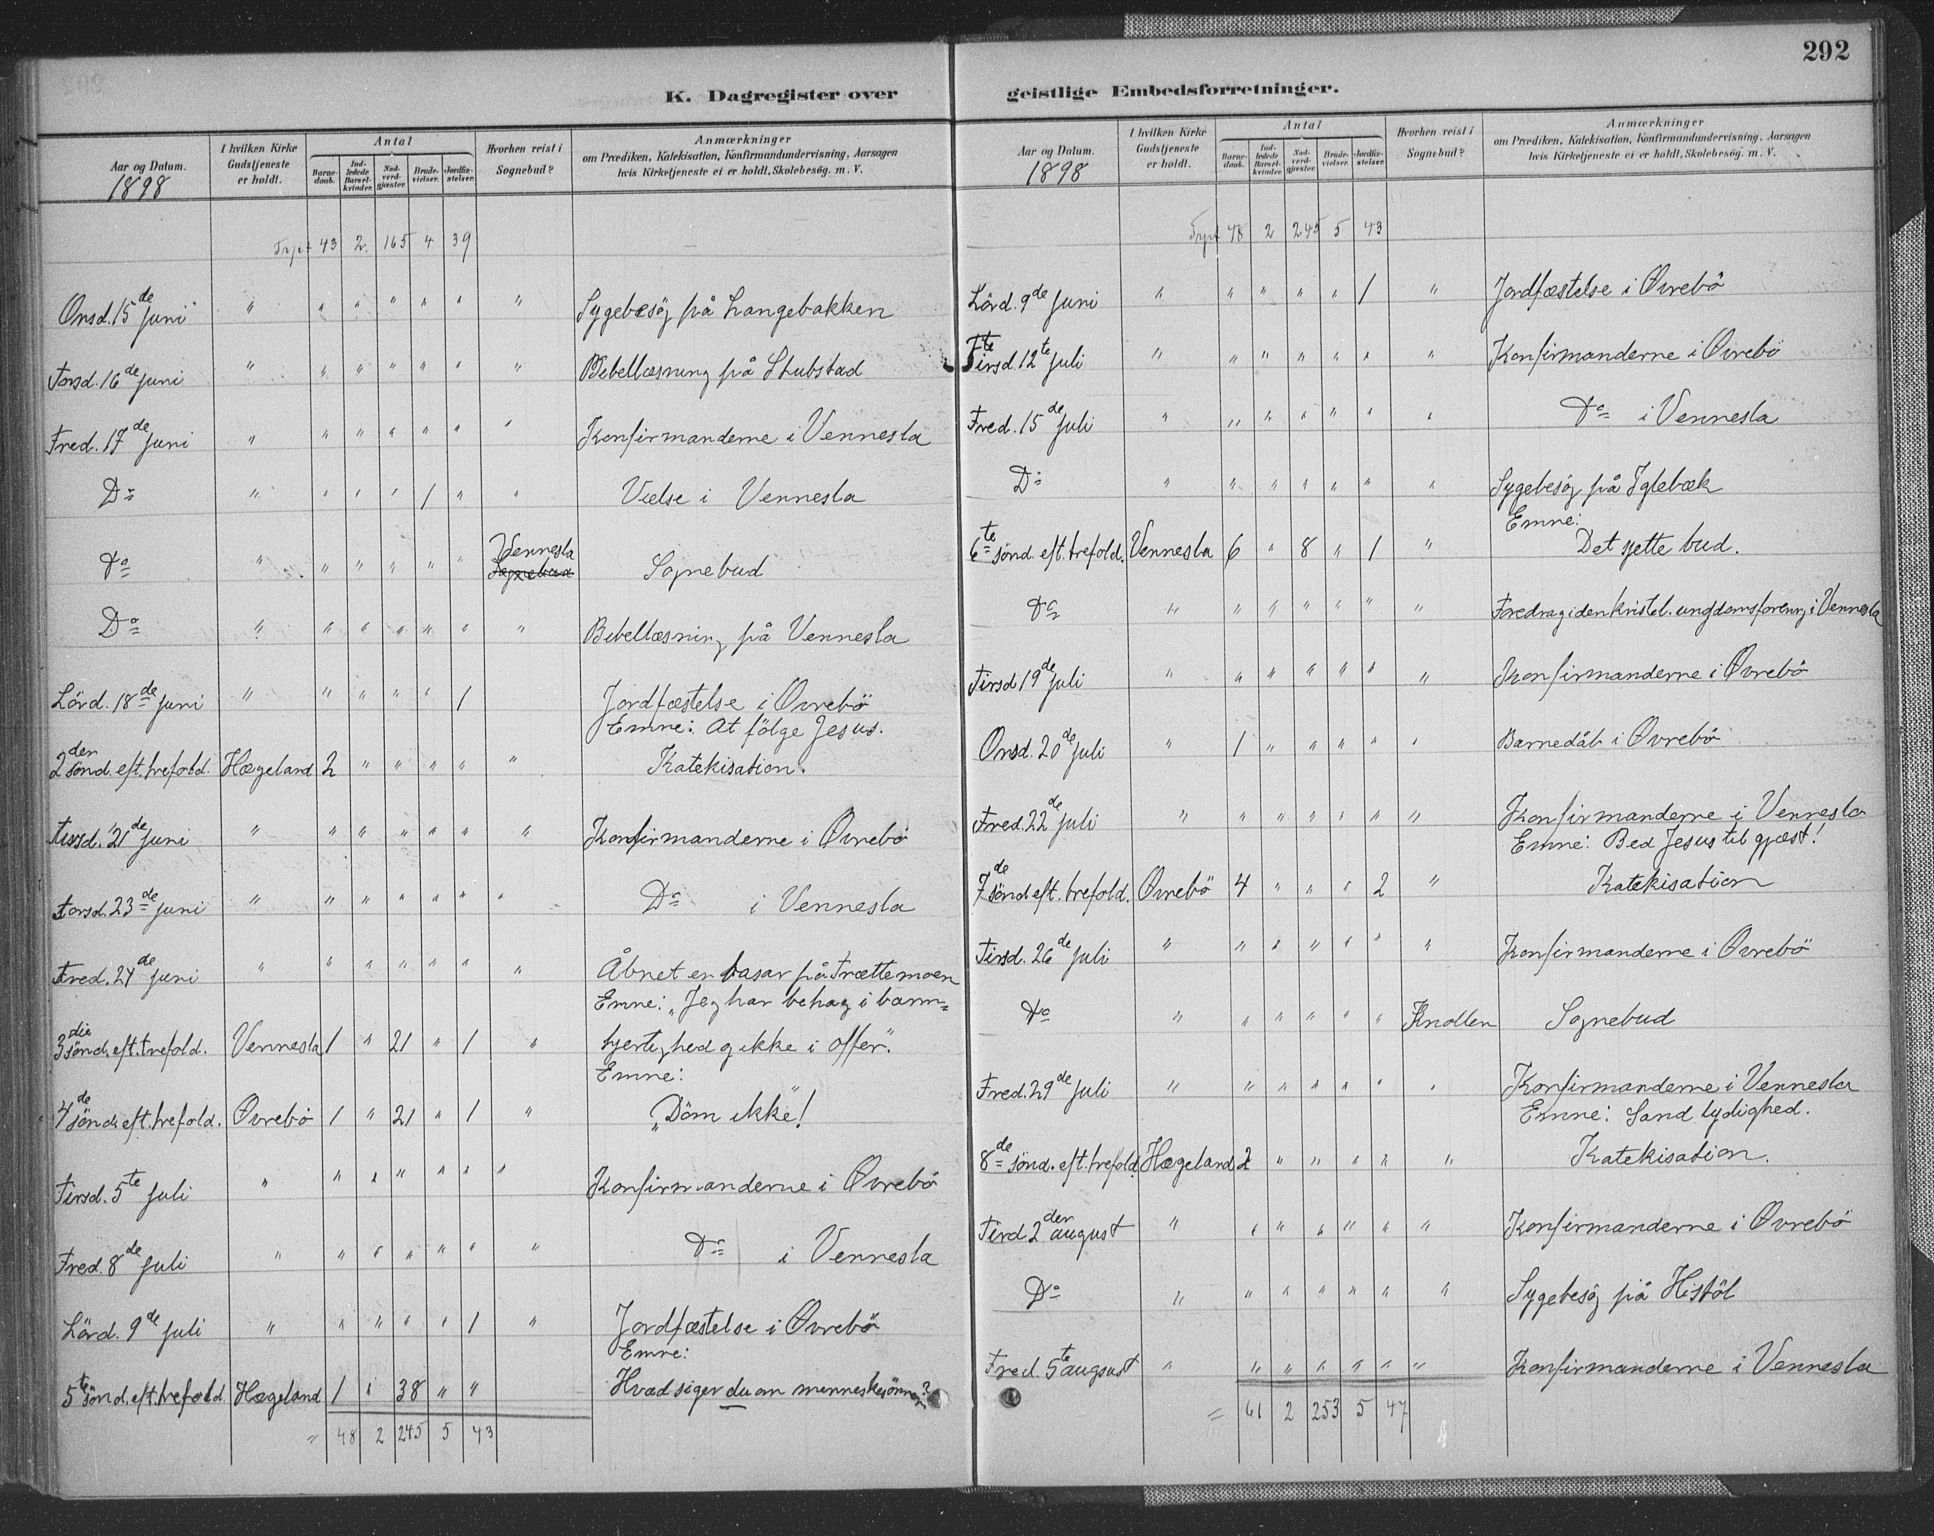 292
K. Dagregister over geistlige Embedsforretninger.
Aar og Datum. 1898 | I hvilken Kirke Gudstjeneste er holdt. | Antal | Barnedaab. | Indledede Barselkvinder. | Nadverdgjæster. | Brudevielser. | Jordfæstelser. | Hvorhen reist i Sognebud? | Anmærkninger om Prædiken, Katekisation, Konfirmandundervisning, Aarsagen hvis Kirketjeneste ei er holdt, Skolebesøg. m. V.
43 2. 165 4 39
Onsd. 15de juni " " " " " " " Sygebesög på Langebakken
Torsd. 16de juni " " " " " " " Bibellæsning på Stubstad
Fred. 17de juni " " " " " " " Konfirmanderne i Vennesla
Do " " " " 1 " " Vielse i Vennesla
Do " " " " " " Vennesla Sognebud Sognebud
Do " " " " " " " Bibellæsning på Vennesla
Lörd. 18de juni " " " " " 1 Jordfæstelse i Øvrebö
Emne: At fölge Jesus.
2den sönd. eft. trefold. Hægeland 2 " " " " " Katekisation.
Tirsd. 21de juni " " " " " " " Konfirmanderne i Øvrebö
Torsd. 23de juni " " " " " " " Do i Vennesla
Fred. 24de juni " " " " " " " Åbnet en basar på Trættemoen
Emne: „Jeg har behag i barm=
3die sönd. eft. trefold. Vennesla 1 " 21 " 1 " hjertighed og ikke i offer".
Emne:
4de sönd. eft. trefold. Øvrebö 1 " 21 " 1 " „Döm ikke"!
Tirsd. 5te juli " " " " " " " Konfirmanderne i Øvrebö
Fred. 8de juli " " " " " " " Do i Vennesla
Lörd. 9de juli " " " " " 1 " Jordfæstelse i Øvrebö
Emne:
5te sönd. eft. trefold. Hægeland 1 " 38 " " Hvad siger du om menneskesönnen?
= 48 2 245 5 43
Aar og Datum. 1898 | I hvilken Kirke Gudstjeneste er holdt. | Antal | Barnedaab. | Indledede Barselkvinder. | Nadverdgjæster. | Brudevielser. | Jordfæstelser. | Hvorhen reist i Sognebud? | Anmærkninger om Prædiken, Katekisation, Konfirmandundervisning, Aarsagen hvis Kirketjeneste ei er holdt, Skolebesøg. m. V.
48 2 245 5 43
Lörd. 9de juni " " " " " 1 " Jordfæstelse i Øvrebö
Tirsd. 12te juli " " " " " " " Konfirmanderne i Øvrebö
Fred. 15de juli " " " " " " " Do i Vennesla
Do " " " " " " " Sygebesög på Iglebæk
Emne:
6te sönd. eft. trefold. Vennesla 6 " 8 " 1 " Det sjette bud.
Do " " " " " " " Foredrag i den kristel. ungdomsforening i Vennesla
Tirsd 19de juli " " " " " " " Konfirmanderne i Øvrebö
Onsd. 20de juli " 1 " " " " " Barnedåb i Øvrebö
Fred. 22de juli " " " " " " " Konfirmanderne i Vennesla
Emne: Bed Jesus til gjæst!
7de sönd eft. trefold. Øvrebö 4 " " " 2 " Katekisation
Tirsd. 26de juli " " " " " " " Konfirmanderne i Øvrebö
Do " " " " " " Knollen Sognebud
Fred. 29de juli " " " " " " " Konfirmanderne i Vennesla
Emne: Sand lydighed.
8de sönd. eft. trefold. Hægeland 2 " " " " " Katekisation.
Tirsd 2den august " " " " " " " Konfirmanderne i Øvrebö
Do " " " " " " " Sygebesög på Histöl
Fred. 5te august " " " " " " " Konfirmanderne i Vennesla
= 61 2 253 5 47